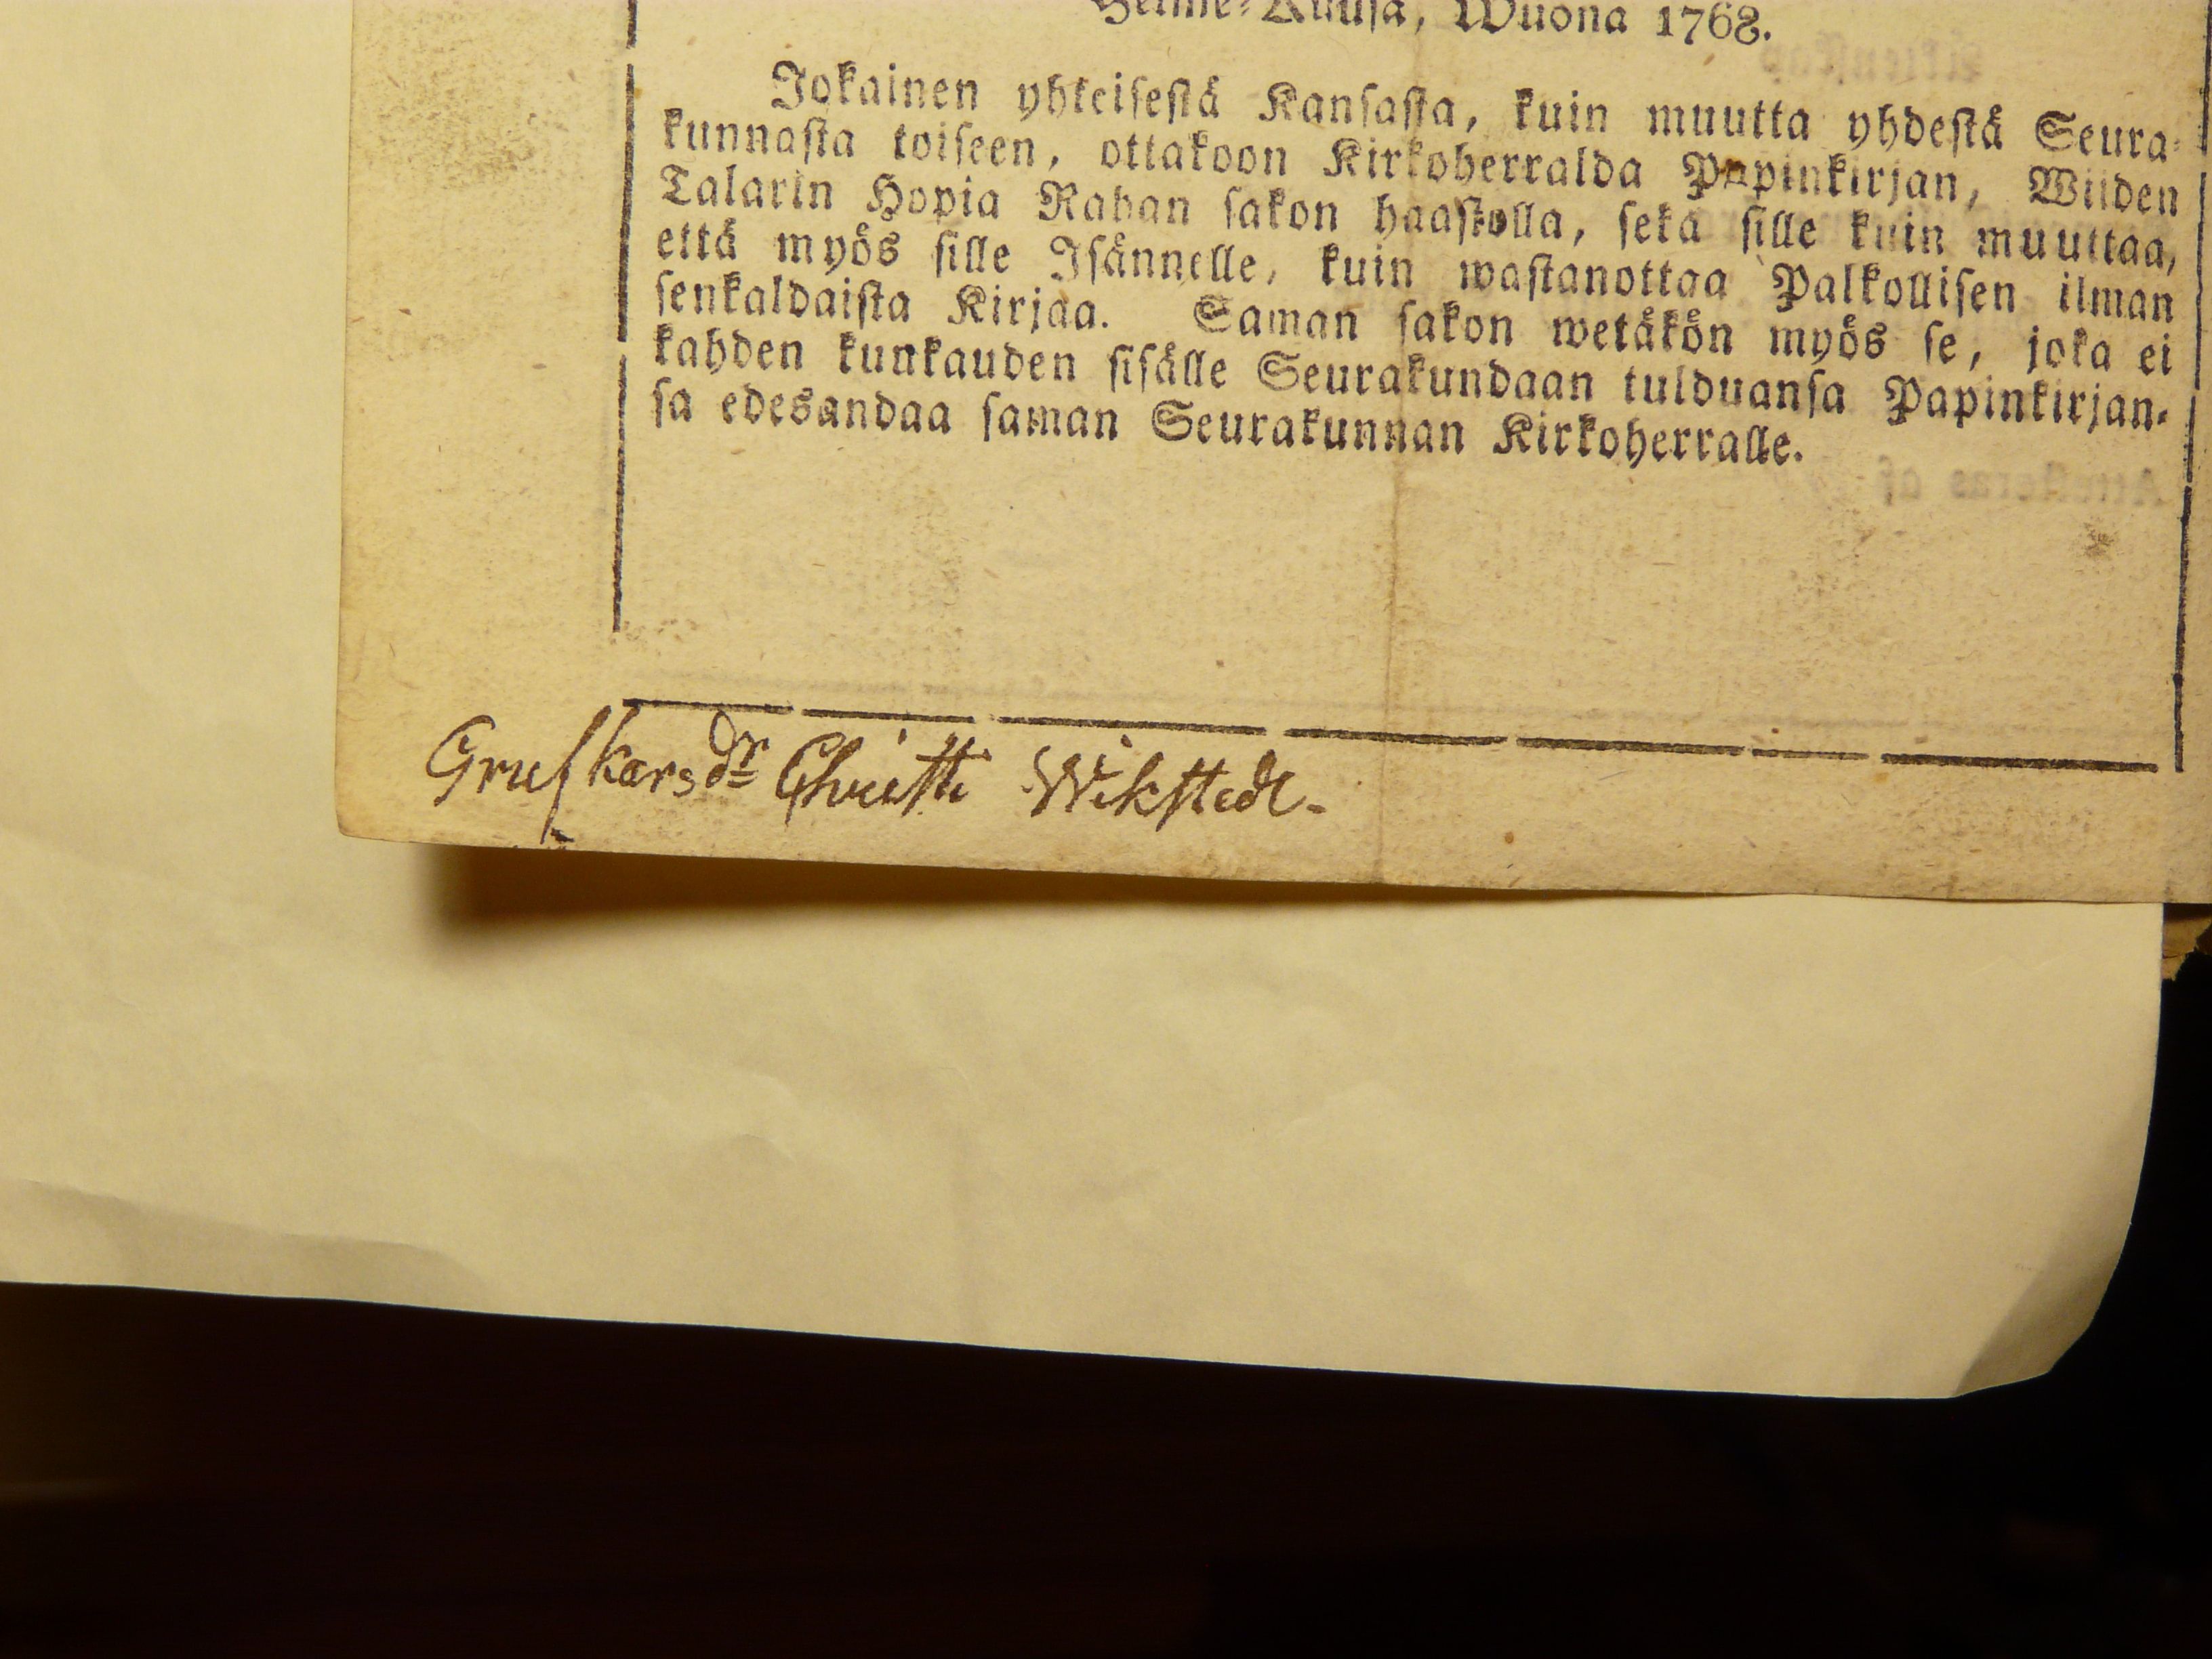 Heine-Kuusa, Wuona 1768.
Jokainen yhteisestä Kansasta, kuin muutta yhdestä Seura-
kunnasta toiseen, ottakoon Kirkoherralda Papinkirjan, Wiiden
Talarin Hopia Rahan sakon haastolla, sekä sille kuin muuttaa,
että myös sille Isännelle, kuin wastanottaa Palkollisen ilman
senkaldaista Kirjaa. Saman sakon wetäkön myös se, joka ei
kahden kunkauden sisälle Seurakundaan tulduansa Papinkirjan-
sa edesandaa saman Seurakunnan Kirkoherralle.
Attesteras af
Christi Wikstedt